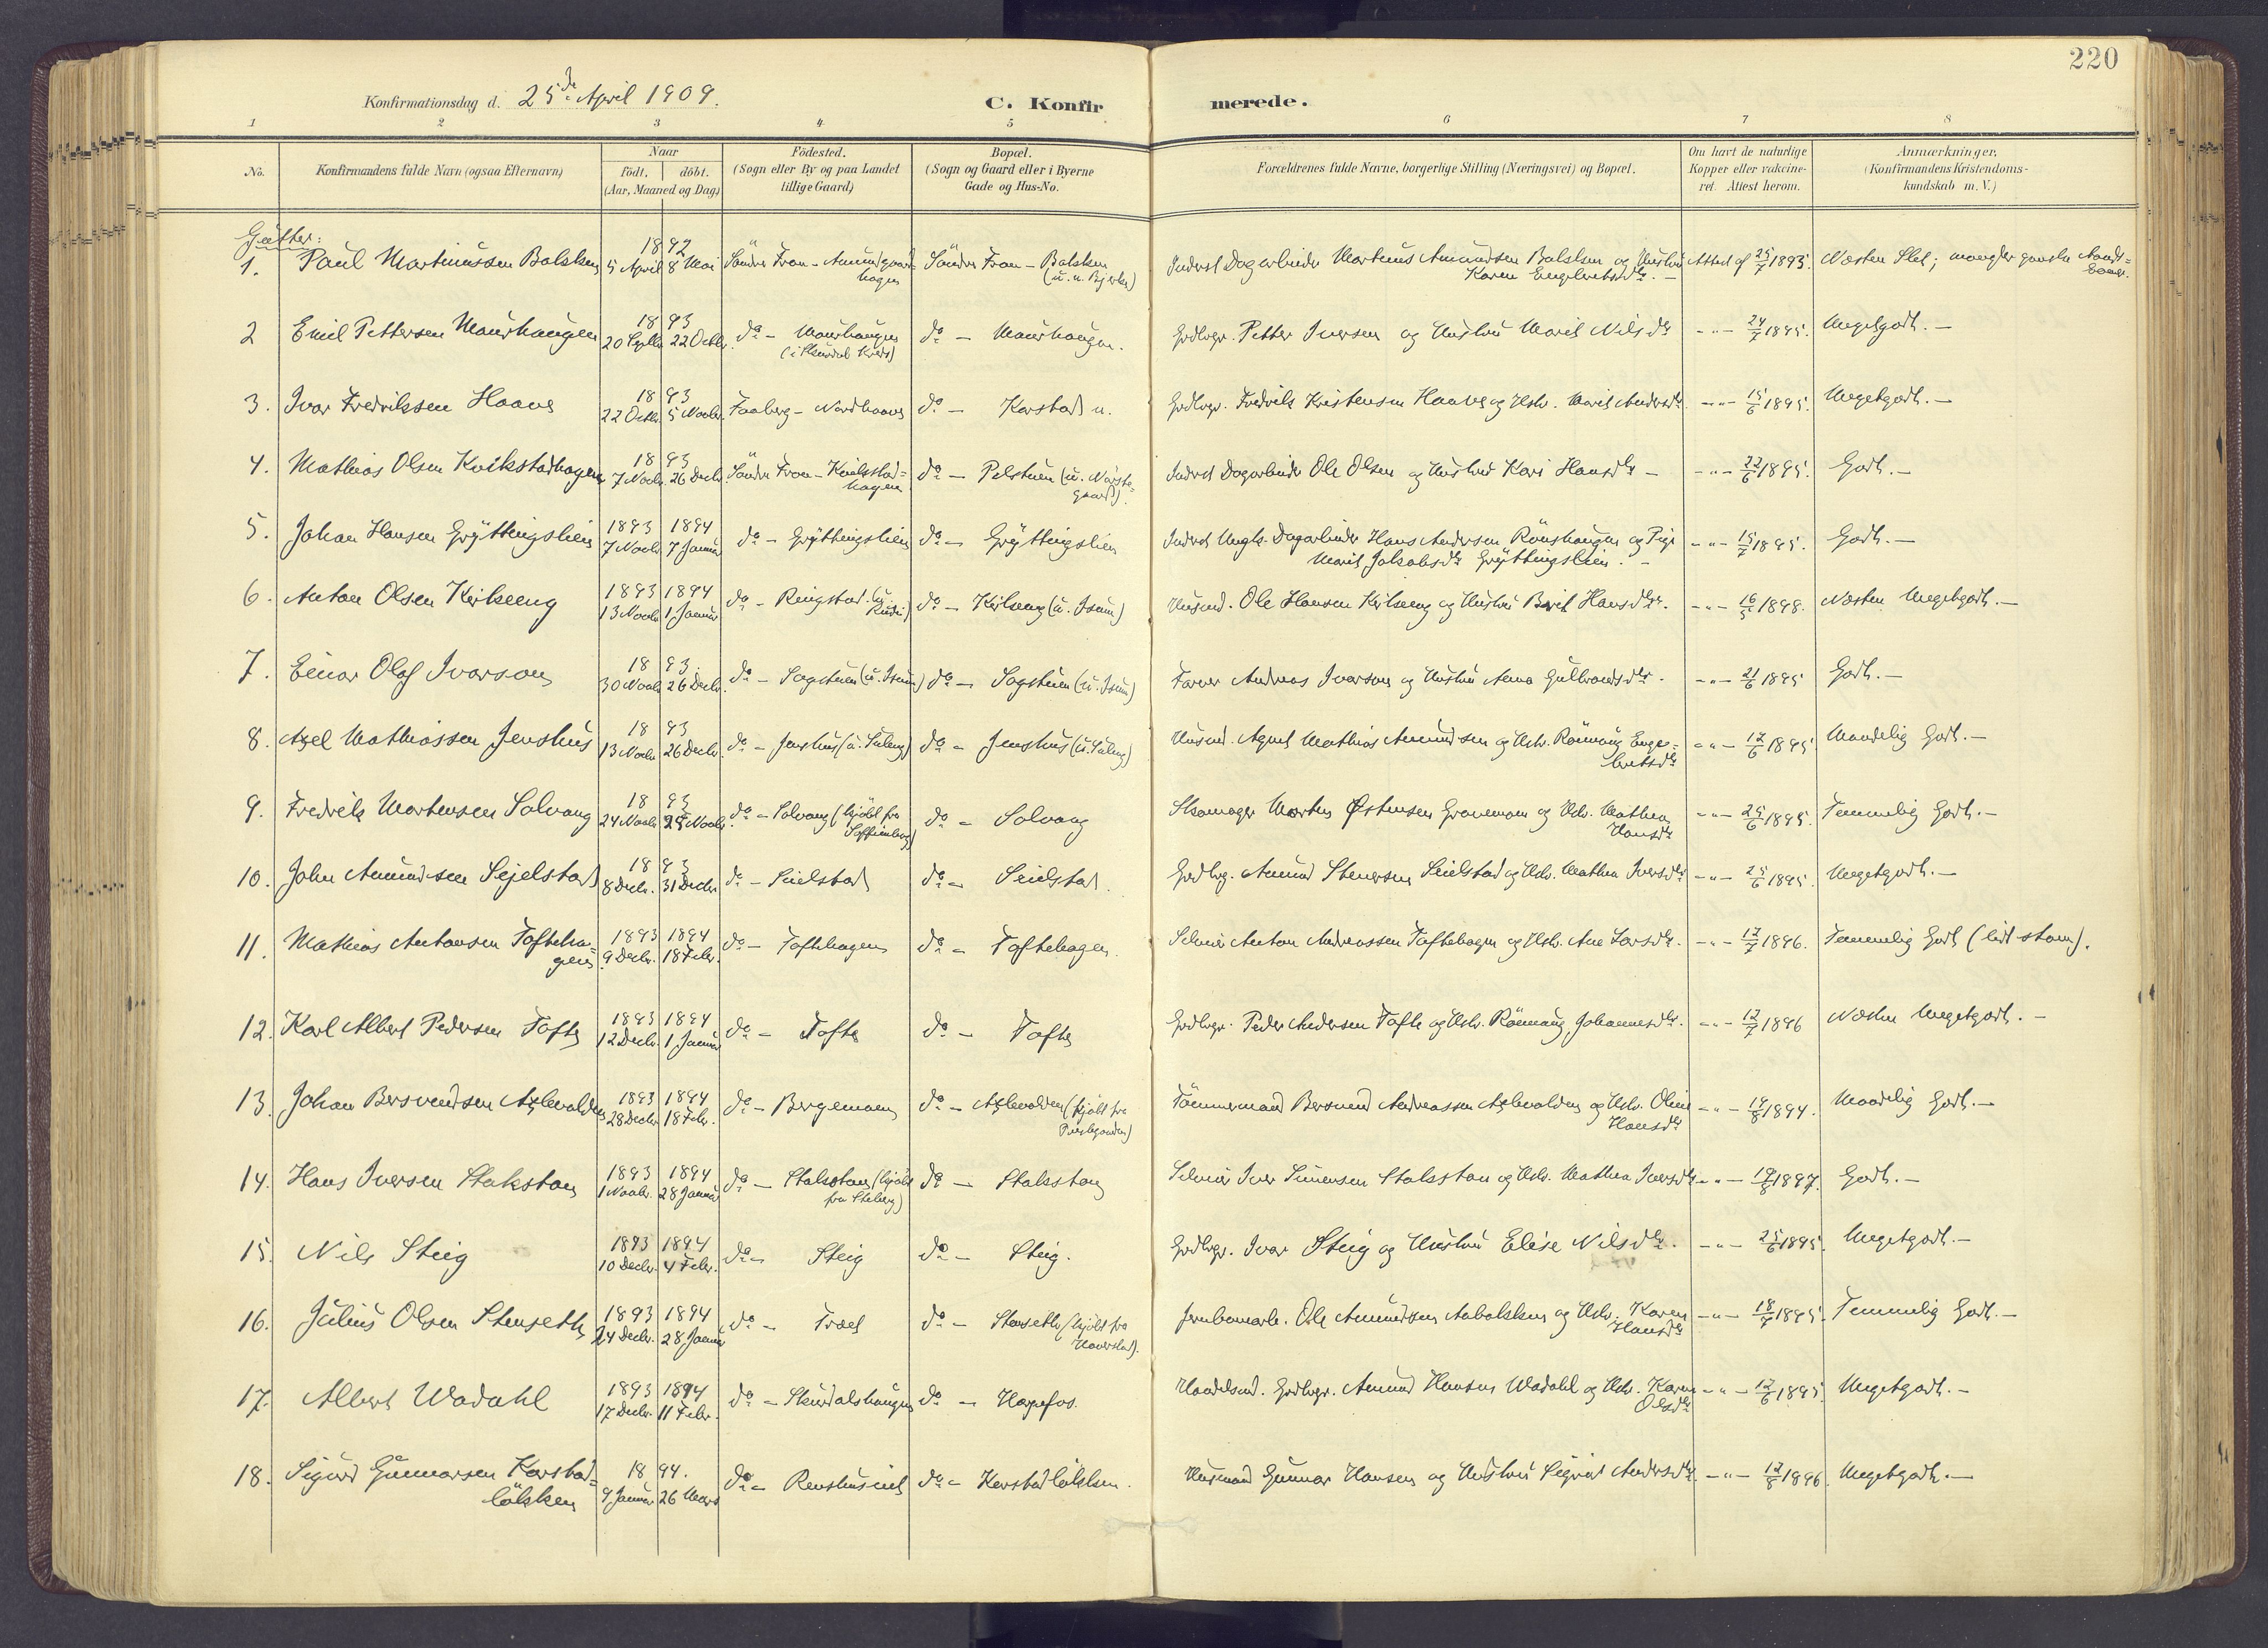 220
Konfirmationsdag d. 25de April 1909.
C. Konfir merede.
1 2 3 4 5 6 7 8
No.
Konfirmandens fulde Navn (ogsaa Efternavn)
Naar
födt. döbt.
(Aar, Maaned og Dag)
Födested.
(Sogn eller By og paa Landet
tillige Gaard)
Bopæl.
(Sogn og Gaard eller i Byerne
Gade og Hus-No.
Forældrenes fulde Navne, borgerlige Stilling (Næringsvei) og Bopæl.
Om havt de naturlige
Kopper eller vakcine-
ret. Attest herom.
Anmærkninger,
(Konfirmandens Kristendoms-
kundskab m. V.)
Gutter:
1. Paul Martinussen Bakken 1892 5 April 8 Mai Söndre Fron - Söndre Fron - Inderst Dagarbeider Martinus Amundsen og Hustru Attest af 25/7 1893. Næsten Slet; mangler ganske
Karen Engebretsdtr. -
2 Emil Pettersen Maurhaugen 1893 20 Septbr. 22 Octbr. do - Maurhaugen do - Maurhaugen. Grdbrgr. Petter Iversen og Hustru Marit Nilsdtr -"- 24/7 1895. Megetgodt. -
3. Ivar Fredriksen Haave 1893 22 Octbr. 5 Novbr. Faaberg - Nordhaave do - Korstad u. Grdbrgr. Fredrik Kristensen Haave og Hstr. Marit Andersdtr. -"- 15/6 1895. Megetgodt. -
4. Mathias Olsen Kvikstadhagen 1893 7 Novbr. 26 Decbr. Söndre Fron - Kvikstad=
hagen do - Pelstuen (u. Inderst Dagarbeider Ole Olsen og Hustru Kari Hansdtr - -"- 22/6 1895. Godt. -
5. Johan Hansen Gryttingslien 1893 7 Novbr. 1894 7 Januar do - Gryttingslien do - Gryttingslien Inderst Ungk. Dagarbeider Hans Andersen Rönshaugen og Pige -"- 15/7 1895. Godt. -
Marit Jakobsdtr Gryttingslien. -
6. Anton Olsen Kirkeeng 1893 13 Novbr. 1894 1 Januar do - Ringstad. do - Kirkeeng (u. Isum) Husmd. Ole Hansen Kirkeeng og Hustru Berit Hansdtr. -"- 16/5 1898. Næsten Megetgodt. -
7. Einar Olaf Ivarson 1893. 30 Novbr. 26 Decbr. do - Sagstuen (u. Isum) do - Sagstuen (u. Isum) Farver Andreas Ivarson og Hustru Anna Gulbrandsdtr. -"- 21/6 1895 Godt. -
8. Axel Mathiassen Jenshus 1893 13 Novbr. 26 Decbr. do - Jenshus do - Jenshus Husmd. Agent Mathias Amundsen og Hstr. Rönnaug Enge=
bretsdtr -"- 12/6 1895 Maadelig Godt. -
9. Fredrik Martensen Solvang 1893 24 Novbr. do - Solvang (kjöbt fra do - Solvang Skomager Morten Østensen og Hstr. Mathea
Hansdtr -"- 25/6 1895. Temmelig Godt. -
10. John Amundsen Sejelstad 1893 8 Decbr. 31 Decbr. do - Seielstad do - Seielstad. Grdbrg. Amund Stenersen Seielstad og Hstr. Mathea Iversdtr -"- 25/6 1895. Megetgodt. -
11. Mathias Antonsen Tofteha=
gen 1893 9 Decbr. 1894 18 Febr. do - Toftehagen do - Toftehagen. Selveier Anton Andreassen Toftehagen og Hstr. Ane Larsdtr. -"- 12/7 1896. Temmelig Godt (lidt stam).
12. Karl Albert Pedersen Tofte 1893 12 Decbr. 1894 1 Januar do - Tofte do - Tofte Grdbrgr. Peder Andersen Tofte og Hstr. Rönnaug Johannesdtr. -"- 12/7 1896 Næsten Megetgodt. -
13. Johan Bersvendsen Axlevolden 1893 28 Decbr. 1894 18 Febr. do - Bergemoen do - Axlevolden (kjöbt fra Tömmermand Bersvend Andreassen Axlevolden og Hstr. Oline
Hansdtr -"- 19/8 1894. Maadelig Godt. -
14. Hans Iversen Stakston 1893 1 Novbr. 1894 28 Januar do - Stakston (kjöbt
fra do - Stakston Selveier Iver Simensen Stakston og Hstr. Mathea Iversdtr -"- 19/8 1897. Godt. -
15. Nils Steig 1893 10 Decbr. 1894 4 Febr. do - Steig do - Steig. Grdbrgr. Ivar Steig og Hustru Elise Nilsdtr. -"- 25/6 1895. Megetgodt. -
16. Julius Olsen Stenseth 1893 24 Decbr. 1894 28 Januar do - do - Stenseth (kjöbt fra Jernbanearb. Ole Amundsen og Hstr. Karen
Hansdtr -"- 18/7 1895. Temmelig Godt. -
17. Albert Wadahl 1893 17 Decbr. 1894 11 Febr. do - Skurdalshaugen do - Harpefos. Handelsmd. Grdbrgr. Amund Hansen Wadahl og Hstr. Karen
Olsdtr -"- 12/6 1895. Megetgodt. -
18. Sigurd Gunnarsen Korstad=
lökken 1894. 9 Januar 26 Mars do - do - Korstadlökken. Husmand Gunnar Hansen og Hustru Sigrid Andersdtr. -"- 12/8 1896. Megetgodt. -